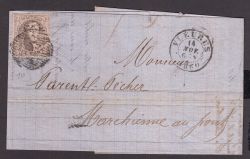 FLEURUS
14
NOV
Monsieur
Parent-Pecher
Marchienne au pont